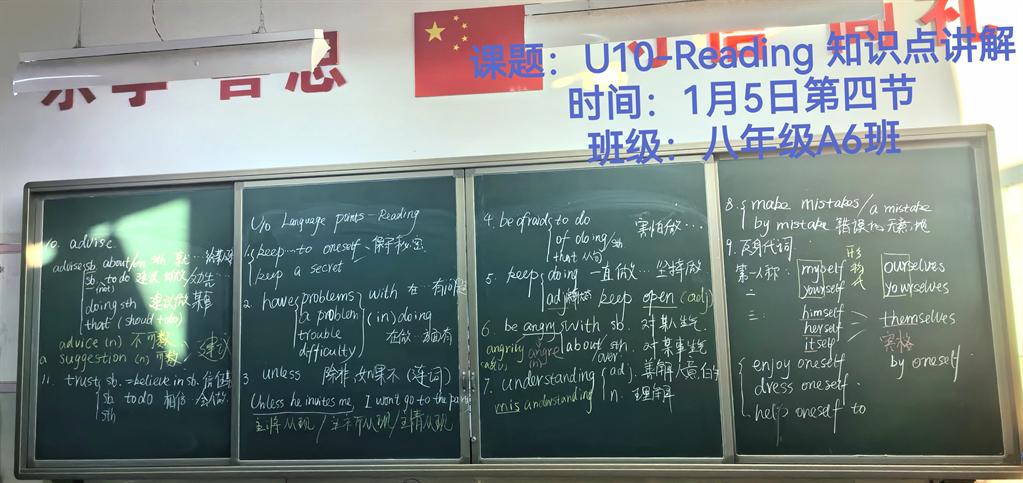 乐学 善思
课题：U10-Reading 知识点讲解
时间：1月5日第四节
班级：八年级A6班
10. advise
advise sb. about/on sth 就…给某人
sb. (not) to do 建议
doing sth 建议做某事
that (should + do)
advice (n) 不可数
a suggestion (n) 可数 建议
11. trust sb. = believe in sb. 信任某
sb. to do 相信…会做
sth
U10 Language points - Reading
1. keep … to oneself 保守秘密
keep a secret
2. have problems with 在…有问题
a problem
trouble (in) doing
difficulty 在做…方面有
3. unless 除非,如果不 (连词)
Unless he invites me, I won't go to the party
主将从现 / 主祈从现 / 主情从现
4. be afraid to do 害怕做…
of doing/sth
that 从句
5. keep doing 一直做… 坚持做
adj keep open (adj)
6. be angry with sb. 对某人生气
angrily about/over sth. 对某事生气
7. understanding adj. 善解人意的
n. 理解
misunderstanding
8. make mistakes / a mistake
by mistake 错误地,无意地
9. 反身代词
第一人称: myself 形物代 ourselves
二 yourself yourselves
三: himself
herself themselves
itself 宾格
enjoy oneself by oneself
dress oneself
help oneself to